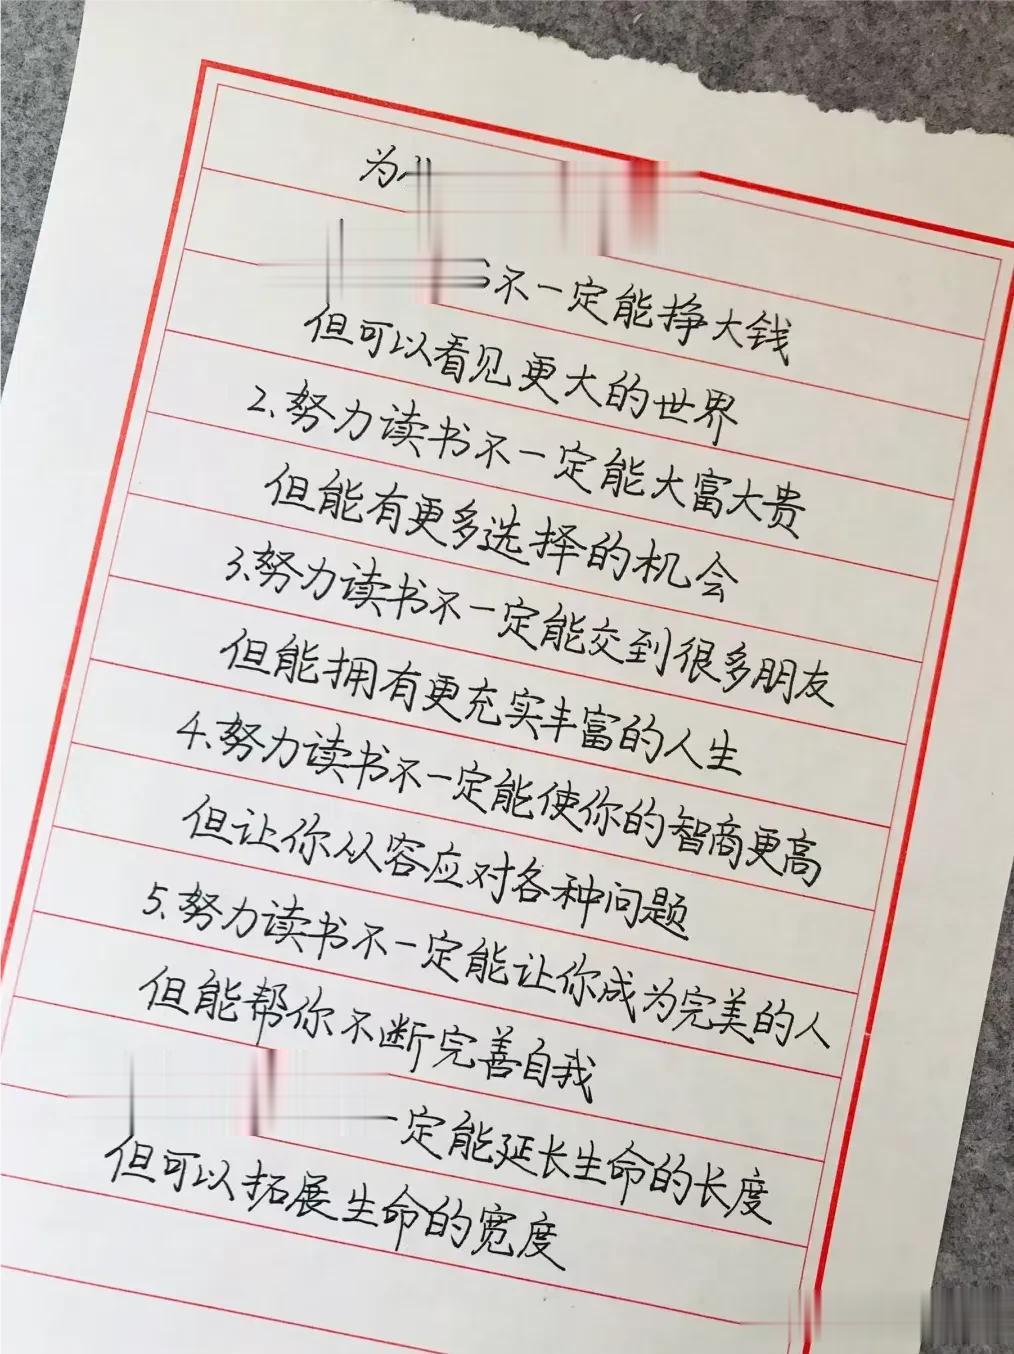 为
不一定能挣大钱
但可以看见更大的世界
2.努力读书不一定能大富大贵
但能有更多选择的机会
3.努力读书不一定能交到很多朋友
但能拥有更充实丰富的人生
4.努力读书不一定能使你的智商更高
但让你从容应对各种问题
5.努力读书不一定能让你成为完美的人
但能帮你不断完善自我
一定能延长生命的长度
但可以拓展生命的宽度